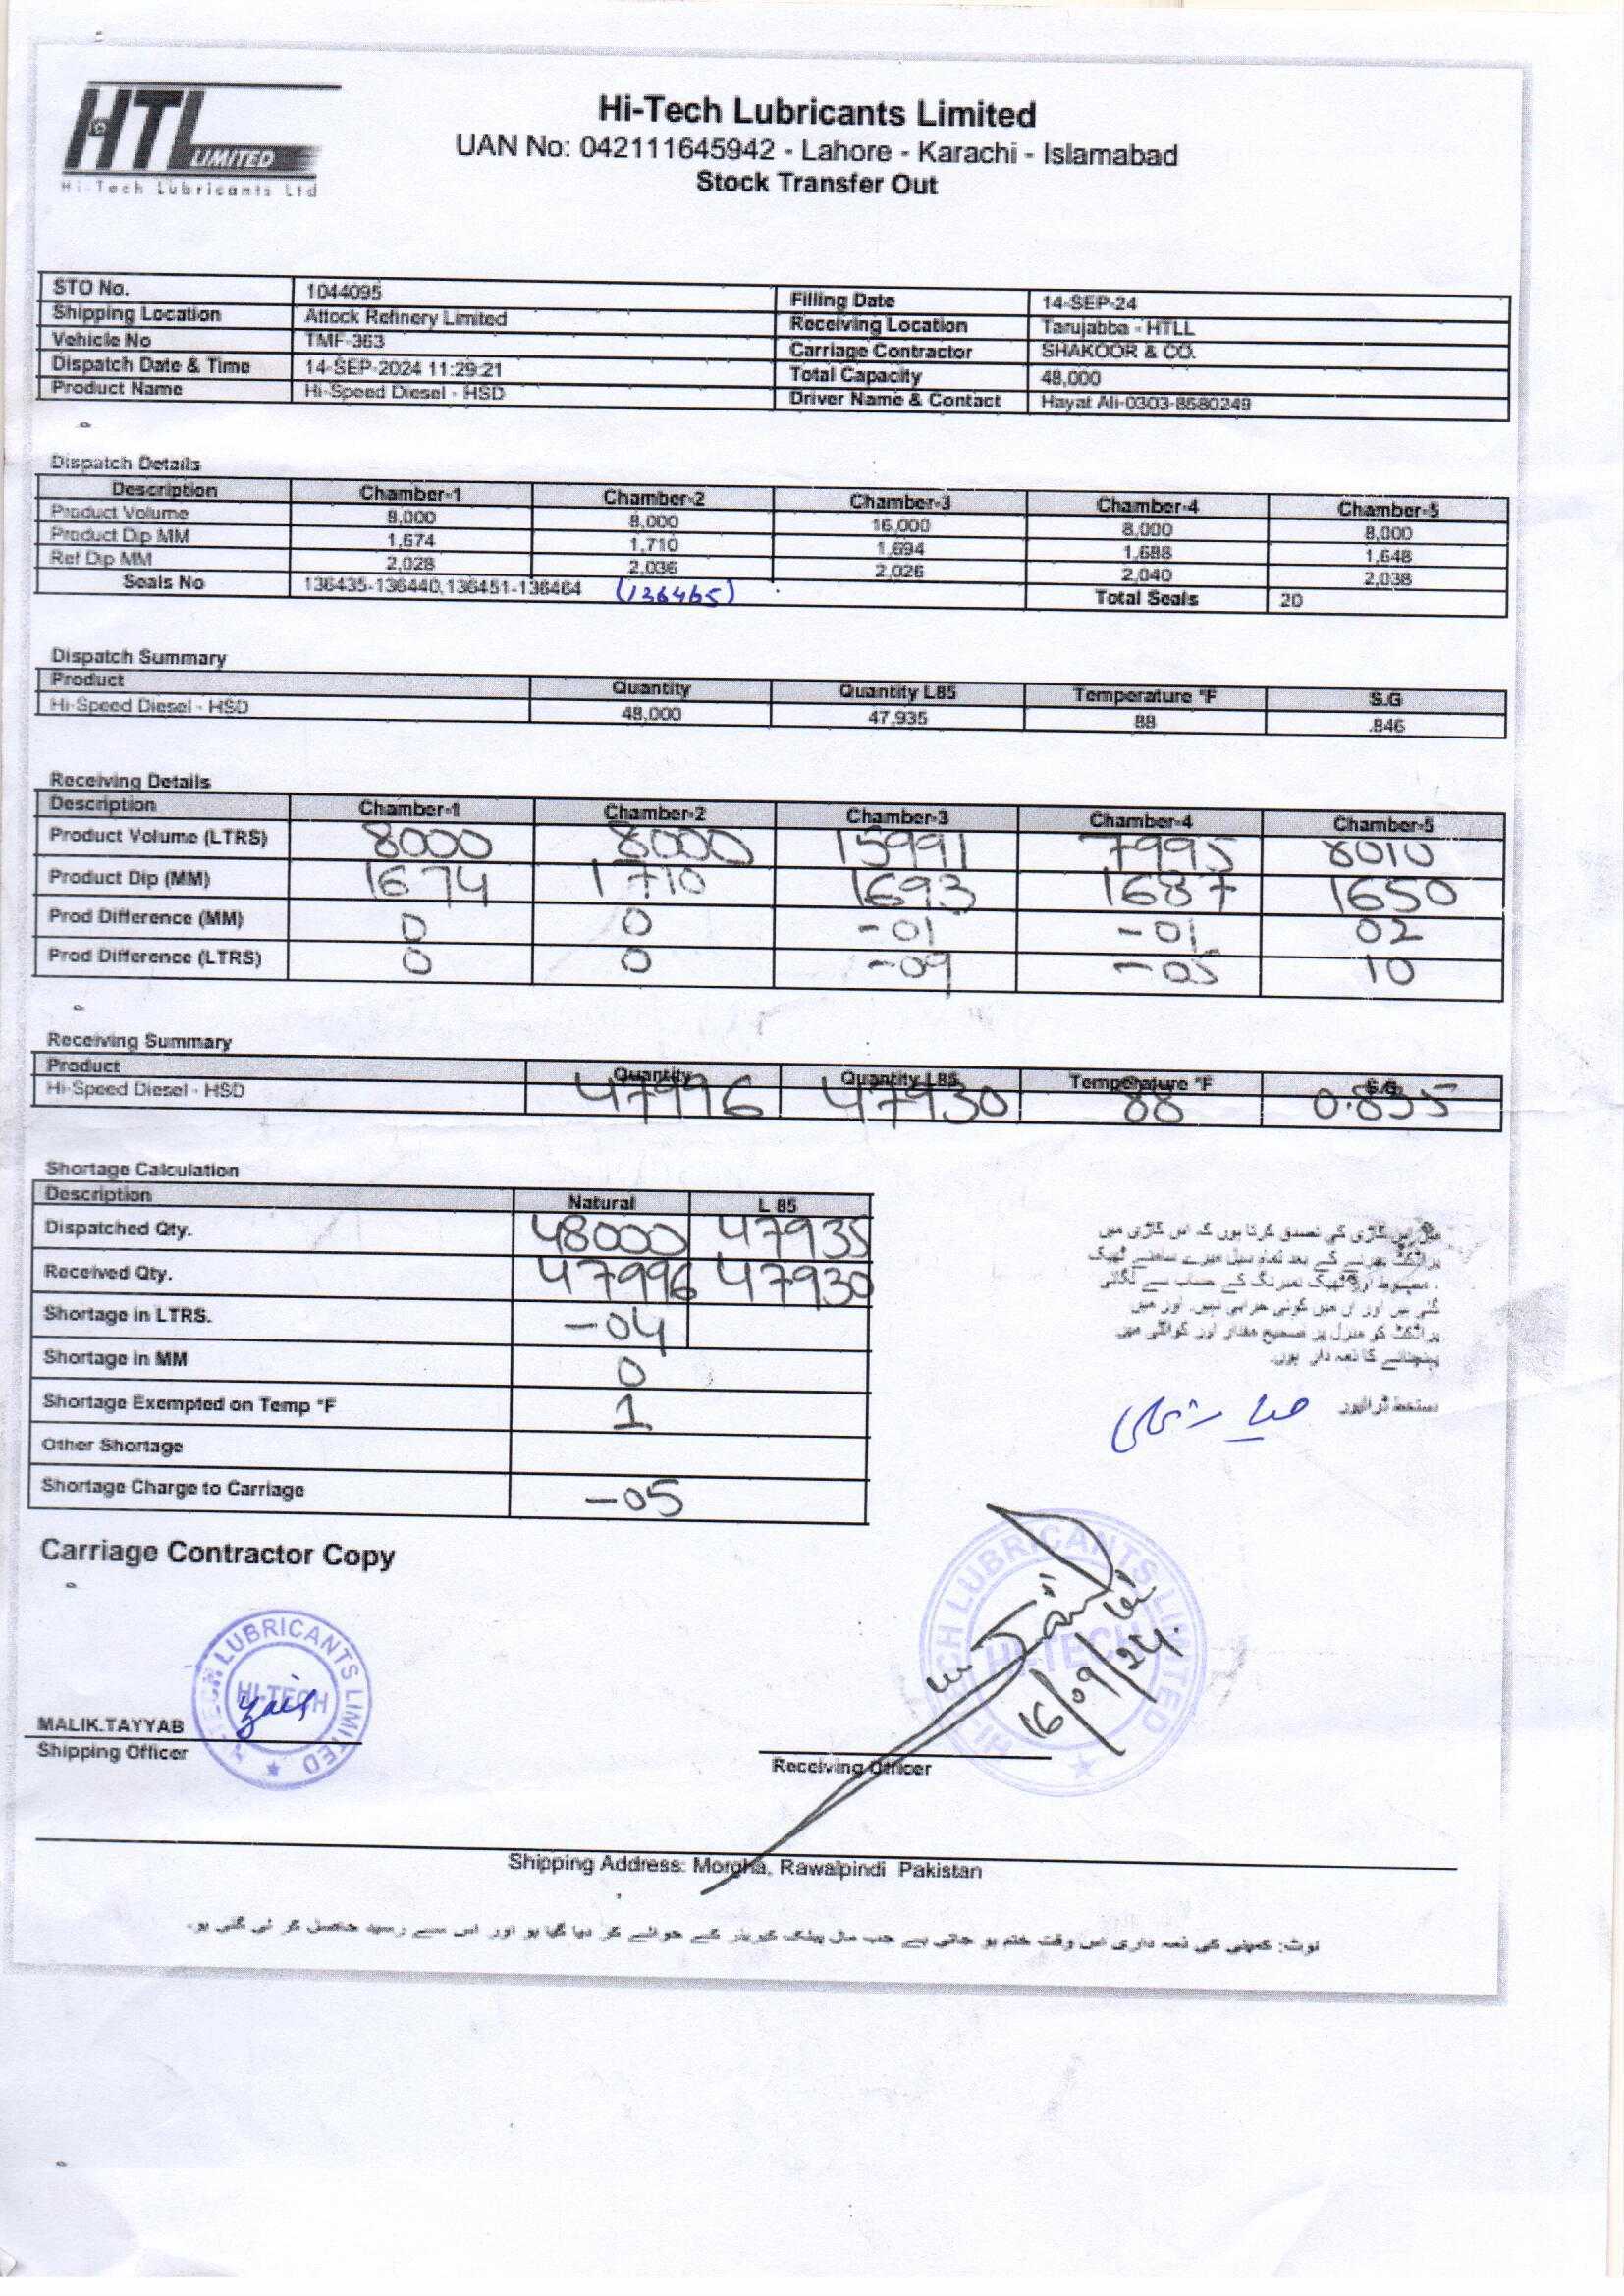 HTL LIMITED
Hi-Tech Lubricants Ltd
Hi-Tech Lubricants Limited
UAN No: 042111645942 - Lahore - Karachi - Islamabad
Stock Transfer Out
STO No. 1044095 Filling Date 14-SEP-24
Shipping Location Attock Refinery Limited Receiving Location Tarujabba - HTLL
Vehicle No TMF-363 Carriage Contractor SHAKOOR & CO.
Dispatch Date & Time 14-SEP-2024 11:29:21 Total Capacity 48,000
Product Name Hi-Speed Diesel - HSD Driver Name & Contact Hayat Ali-0303-8580249
Dispatch Details
Description Chamber-1 Chamber-2 Chamber-3 Chamber-4 Chamber-5
Product Volume 8,000 8,000 16,000 8,000 8,000
Product Dip MM 1,674 1,710 1,694 1,688 1,648
Ref Dip MM 2,028 2,036 2,026 2,040 2,038
Seals No 136435-136440,136451-136464 (136465) Total Seals 20
Dispatch Summary
Product Quantity Quantity L85 Temperature °F S.G
Hi-Speed Diesel - HSD 48,000 47,935 88 .846
Receiving Details
Description Chamber-1 Chamber-2 Chamber-3 Chamber-4 Chamber-5
Product Volume (LTRS) 8000 8000 15991 7995 8010
Product Dip (MM) 1674 1710 1693 1687 1650
Prod Difference (MM) 0 0 -01 -01 02
Prod Difference (LTRS) 0 0 -09 -05 10
Receiving Summary
Product Quantity Quantity L85 Temperature °F S.G
Hi-Speed Diesel - HSD 47996 47930 88 0.835
Shortage Calculation
Description Natural L 85
Dispatched Qty. 48000 47935
Received Qty. 47996 47930
Shortage in LTRS. -04
Shortage in MM 0
Shortage Exempted on Temp °F 1
Other Shortage
Shortage Charge to Carriage -05
گاڑی کی تصدق کرتا ہوں کہ اس گاڑی میں
پراڈکٹ بھرنے کے بعد تمام سیل میرے سامنے ٹھیک
مضبوط اور ٹھیک نمبرنگ کے حساب سے لگائی
گئی ہیں اور ان میں کوئی خرابی نہیں۔ اور میں
پراڈکٹ کو منزل پر صحیح مقدار اور کوالٹی میں
پہنچانے کا ذمہ دار ہوں۔
دستخط ڈرائیور
Carriage Contractor Copy
HI-TECH LUBRICANTS LIMITED
HI-TECH
MALIK.TAYYAB
Shipping Officer
HI-TECH LUBRICANTS LIMITED
HI-TECH
16/09/24.
Receiving Officer
Shipping Address: Morgha, Rawalpindi Pakistan
نوٹ: کمپنی کی ذمہ داری اس وقت ختم ہو جاتی ہے جب مال کیریئر کے حوالے کر دیا گیا ہو اور اس سے رسید حاصل کر لی گئی ہو۔